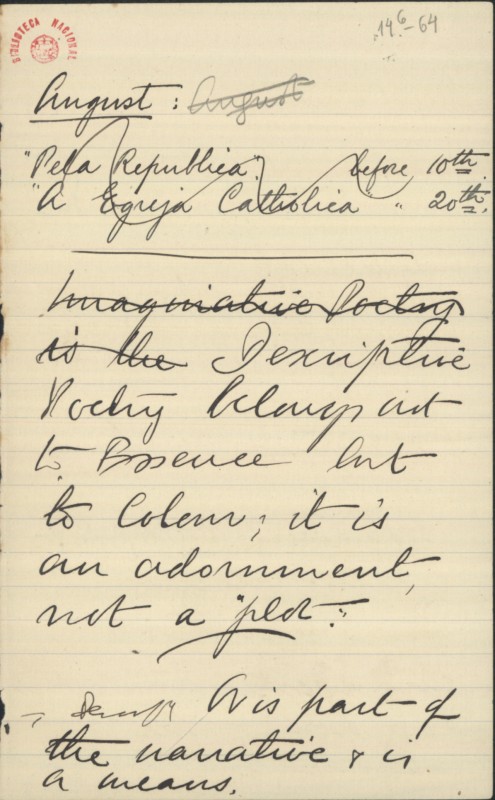 BIBLIOTECA NACIONAL
14⁶-64
August : August
"Pela Republica". before 10th.
"A Egreja Catholica" " 20th.
Imaginative Poetry
is the Descriptive
Poetry belongs not
to Essence but
to Colour; it is
an adornment,
not a "plot".
is part of
the narrative & is
a means.